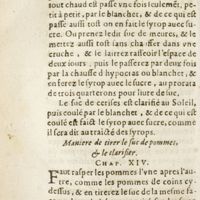 tout chaud est passé vne fois seulemẽt, pe-
tit à petit, par le blanchet, & de ce qui est
passé aussi tost on en fait le syrop auec su-
cre. Ou prenez ledit suc de meures, & le
mettez aussi tost sans chauffer dans vne
cruche, & le laissez rasseoir l'espace de
deux iours, puis le passerez par deux fois
par la chausse d'hypocras ou blanchet, &
en ferez le syrop auec le sucre, au poids
de trois quarterons pour liure de ius.
Le suc de cerises est clarifié au Soleil,
puis coulé par le blanchet, & de ce qui est
coulé est fait le syrop auec sucre, comme
il sera dit au traicté des syrops.
Maniere de tirer le suc de pommes,
& le clarifier.
CHAP. XIV.
FAut rasper les pommes l'vne apres l'au-
tre, comme les pommes de coins cy-
dessus, & en tirerez le suc de la mesme fa-